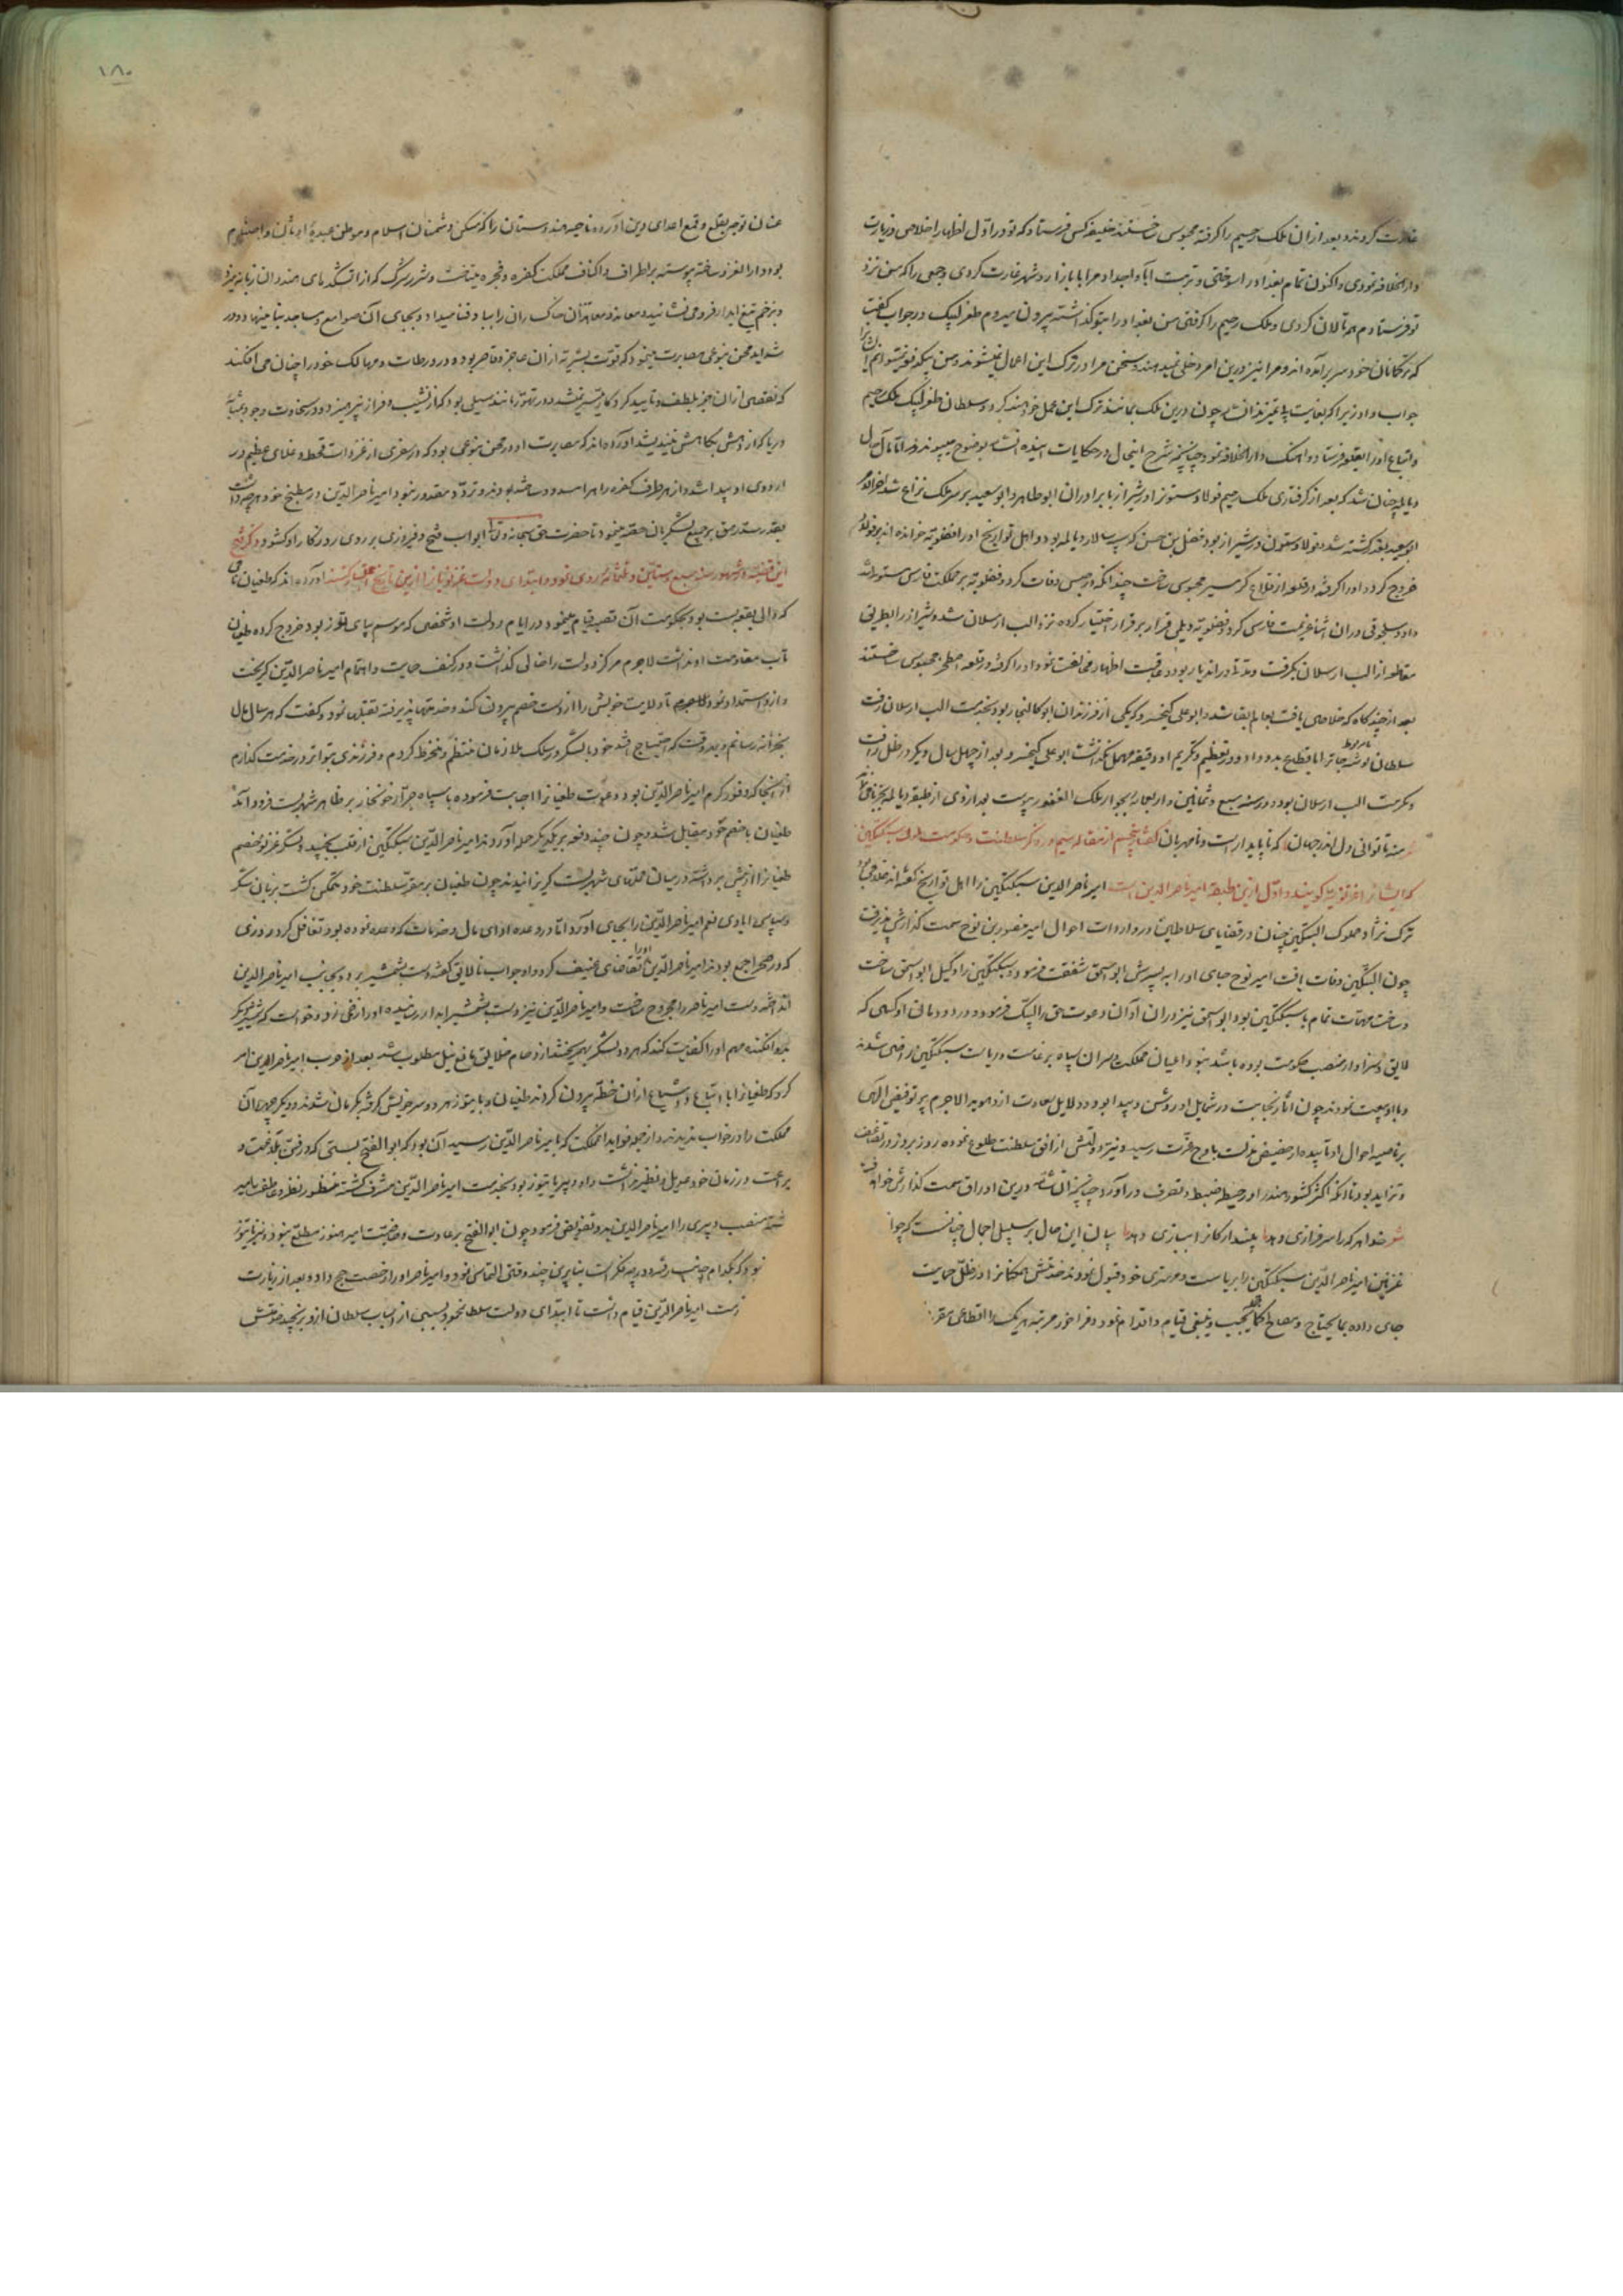 غارت کردند و بعد از ان ملک رحیم را گرفته محبوس ساختند خلیفه کس فرستاد که تو در اول اظهار اخلاص و زیارت
دار الخلافه نمودی و اکنون تمام بغداد را سوختی و تربت آبا و اجداد مرا با بازار و شهر غارت کردی و جمعی را که من نزد
تو فرستادم همه تالان کردی و ملک رحیم را گرفتی من بغداد را بتو گذاشته بیرون میروم طغرلبیک در جواب گفت
که ترکمانان خود سر برآمده اند و مرا نیز درین امر دخلی نمیدهند و سخن مرا در ترک این اعمال نمیشنوند و من
جواب داد زیرا که بغایت بی تمیزند ان شاء چون درین ملک بمانند ترک این عمل خواهند کرد و سلطان طغرلبیک ملک رحیم
و اتباع او را بقلعه فرستاد و اهنک دار الخلافه نمود چنانچه شرح اینحال در حکایات اینده انشاء بوضوح میپیوندد اما مآل حال
دیالمه چنان شد که بعد از گرفتاری ملک رحیم فولاد ستون او در شیراز با برادران ابو طاهر و ابو سعید بر سر ملک نزاع شد
ابو سعید بقتل کشته شد فولاد ستون در شیراز بود فضل بن حسن که سپهسالار دیالمه بود و اهل تواریخ او را فضلویه خوانده اند بر فولاد
خروج کرد و او را گرفته در قلعه از قلاع گرمسیر محبوس ساخت چندانکه در حبس وفات کرد و فضلویه بر مملکت فارس مستولی شد
داود سلجوقی در ان اثنا عزیمت فارس کرد و فضلویه ویلی فرار بر قرار اختیار کرده نزد الب ارسلان شد و شیراز را بطریق
مقاطعه از الب ارسلان بگرفت و مدتی در اندیار بود و عاقبت اظهار مخالفت نمود او را گرفته در قلعه اصطخر محبوس ساختند
بعد از چند گاه که خلاص یافت بعالم بقا شد و ابو علی کیخسرو که یکی از فرزندان ابو کالنجار بود بخدمت الب ارسلان رفت
سلطان نوشنجان را باقطاع بدو داد و در تعظیم و تکریم او دقیقه مهمل نگذاشت ابو علی کیخسرو بعد از چهل سال دیگر در ظل رافت
و مکرمت الب ارسلان بود و در سنه سبع و ثمانین و اربعمایه بجوار ملک الغفور پیوست بعد از وی از طبقه دیالمه بجز نامی نماند
منه تا توانی دل اندر جهان که ناپایدار است و نامهربان گفتار پنجم از مقاله سیم در ذکر سلطنت و حکومت ملوک سبکتکین
که ایشانرا غزنویه گویند و اول ازین طبقه امیر ناصر الدین است امیر ناصر الدین سبکتکین را اهل تواریخ گفته اند غلامی بود
ترک نژاد مملوک البتکین چنان در قضایای سلاطین و در واردات احوال امیر منصور بن نوح سمت گذارش پذیرفت
چون البتکین وفات یافت امیر نوح جای او را به پسرش ابو اسحق شفقت فرمود و سبکتکین را وکیل ابو اسحق ساخت
و ساخت مهمات تمام با سبکتکین بود ابو اسحق نیز دران آوان دعوت حق را لبیک فرمود و در دودمان او کسی که
لایق و سزاوار منصب حکومت بوده باشد نبود اعیان مملکت و سران سپاه بر عامت و ریاست سبکتکین راضی شدند
و با او بیعت نمودند چون اثار نجابت در شمایل او روشن و پیدا بود و دلایل سعادت از و هویدا لاجرم پر توفیق الهی
بر ناصیه احوال او تابیده از حضیض مذلت باوج عزت رسید و نیر دولتش از افق سلطنت طلوع نموده روز بروز در تضاعف
و تزاید بود تا انکه اکثر کشور هند را در حیطه ضبط و تصرف در آورد چنانچه ان شاء الله درین اوراق سمت گذارش خواهد یافت
شعر خدا هر که را سرفرازی دهد پسندار کانرا ببازی دهد بیان این حال بر سبیل اجمال چنانست که چون
غزنین امیر ناصر الدین سبکتکین را بریاست و سروری خود قبول نمودند خدمتش همکنانرا در ظل حمایت
جای داده بمایحتاج و مصالح کما یجب و ینبغی قیام و اقدام نمود و فراخور مرتبه هر یک را اقطاعی مقرر
۱۸۰
عنان توجه بقلع و قمع اعدای دین آورده ناحیه هندوستان را که مسکن دشمنان اسلام و موطن عبده اوثان و اصنام
بود دار الغزو ساخته پیوسته بر اطراف و اکناف مملکت کفره و فجره میتاخت و شرر شرک که از اتشکدهای هندوان زبانه میزد
و بزخم تیغ آبدار فرو می نشانید و معابد و معاهد آن خاکساران را بباد فنا میداد و بجای آن صوامع و مساجد بنا مینهاد و در
شداید محن بنوعی مصابرت مینمود که قوت بشریه از ان عاجز و قاصر بود و در ورطات و مهالک خود را چنان می افکند
که تفصی از ان جز بلطف و تایید کردکار میسر نشدی در تهور مانند سیلی بود که از نشیب و فراز نپرهیزد و در سخاوت وجود بمثابه
دریا که از دهش بکاهش نیندیشد آورده اند که مصابرت او در محن بنوعی بود که در سفری از غزوات قحط و غلای عظیم در
اردوی او پیدا شد و از هر طرف کفره راهها مسدود ساخته بودند و تردد مقدور نبود امیر ناصر الدین در مطبخ خود هرچه داشت
بقدر سد رمق بر جمیع لشکریان حصه مینمود تا حضرت حق سبحانه و تعالی ابواب فتح و فیروزی بر روی روزگار او گشود ذکر فتح
این قضیه در شهور سنه سبع و ستین و ثلثمائه روی نمود و ابتدای دولت غزنویانرا ازین تاریخ اعتبار کنند آورده اند که طغیان نامی
که والی بقلعه بست بود بحکومت آن قصبه قیام مینمود در ایام دولت او شخصی که موسم ببای توز بود خروج کرده طغیان
تاب مقاومت او نداشت لاجرم مرکز دولت را خالی گذاشت و در کنف حمایت و اهتمام امیر ناصر الدین گریخت
و ازو استمداد نمود تا ولایت خویش را از دست خصم بیرون کند و خدمتها پذیرفته تقبلها نمود و گفت که هر سال مال
بخزانه رسانم و بهر وقت که احتیاج افتد خود با لشکر در سلک ملازمان منتظم و منخرط گردم و فرزندی بتواتر در خدمت گذارم
از انجا که وفور کرم امیر ناصر الدین بود دعوت طغیانرا اجابت فرموده با سپاه جرار خونخوار بر ظاهر شهر بست فرود آمد
طغیان با خصم خود مقابل شد و چون چند دفعه بر یکدیگر حمله آوردند امیر ناصر الدین سبکتکین از قلب بجنبید و لشکر غزنه خصم
طغیانرا از پیش برداشته در میان محلتهای شهر بست گریزانیدند چون طغیان بر مقر سلطنت خود متمکن گشت بزبان شکر
و سپاس ایادی نعم امیر ناصر الدین را بجای آورد اما در وعده ادای مال و خدمات که وعده نموده بود تغافل کرد و روزی
که در صحرا جمع بودند امیر ناصر الدین او را تقاضای عنیف کرد و او جواب نالایق گفته دست بشمشیر برد و بجانب امیر ناصر الدین
انداخته دست امیر ناصر را مجروح ساخت و امیر ناصر الدین نیز دست بشمشیر آبدار رسانیده او را زخمی زد و خواست که شمشیر دیگر
بدو افکنده مهم او را کفایت کند که هر دو لشکر بهم برریختند از دحام خلایق مانع نیل مطلوب شد بعد از حرب امیر ناصر الدین امر
کرد که طغیانرا با اتباع و اشیاع از ان خطه بیرون کردند طغیان و بایتوز هر دو سر خویش گرفته بکرمان شدند و دیگر چهره آن
مملکت را در خواب ندیدند و از جمله فواید انمملکت که بامیر ناصر الدین رسید آن بود که ابو الفتح بستی که در فن بلاغت و
براعت در زمان خود عدیل و نظیر نداشت و او دبیر بایتوز بود بخدمت امیر ناصر الدین مشرف گشته منظور نظر و عاطفت امیر
شد منصب دبیری را امیر ناصر الدین بدو تفویض فرمود چون ابو الفتح بر عادت و خاصیت امیر هنوز مطلع نبود و نیز بایتوز
نبود که بکدام جانب رفته و در چه فکر است بنا برین چند وقتی التماس نمود و امیر ناصر او را رخصت حج داد و بعد از زیارت
خدمت امیر ناصر الدین قیام داشت تا ابتدای دولت سلطان محمود بسببی از اسباب سلطان ازو برنجید خدمتش